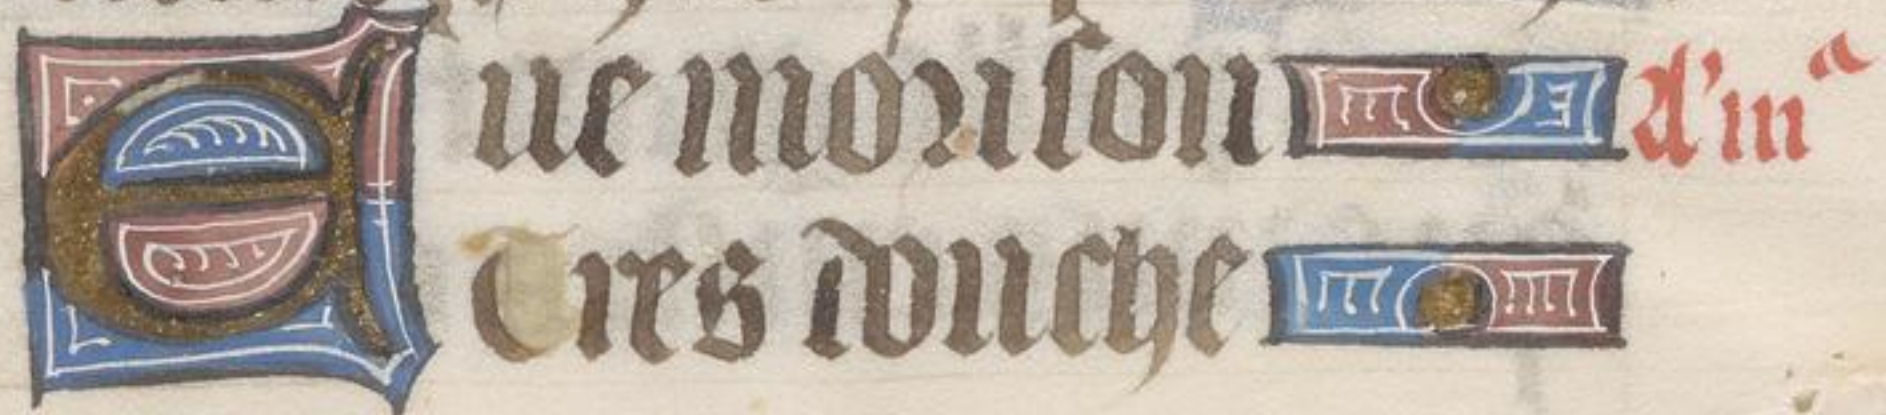 Eue morison A'in^a
Tres douche